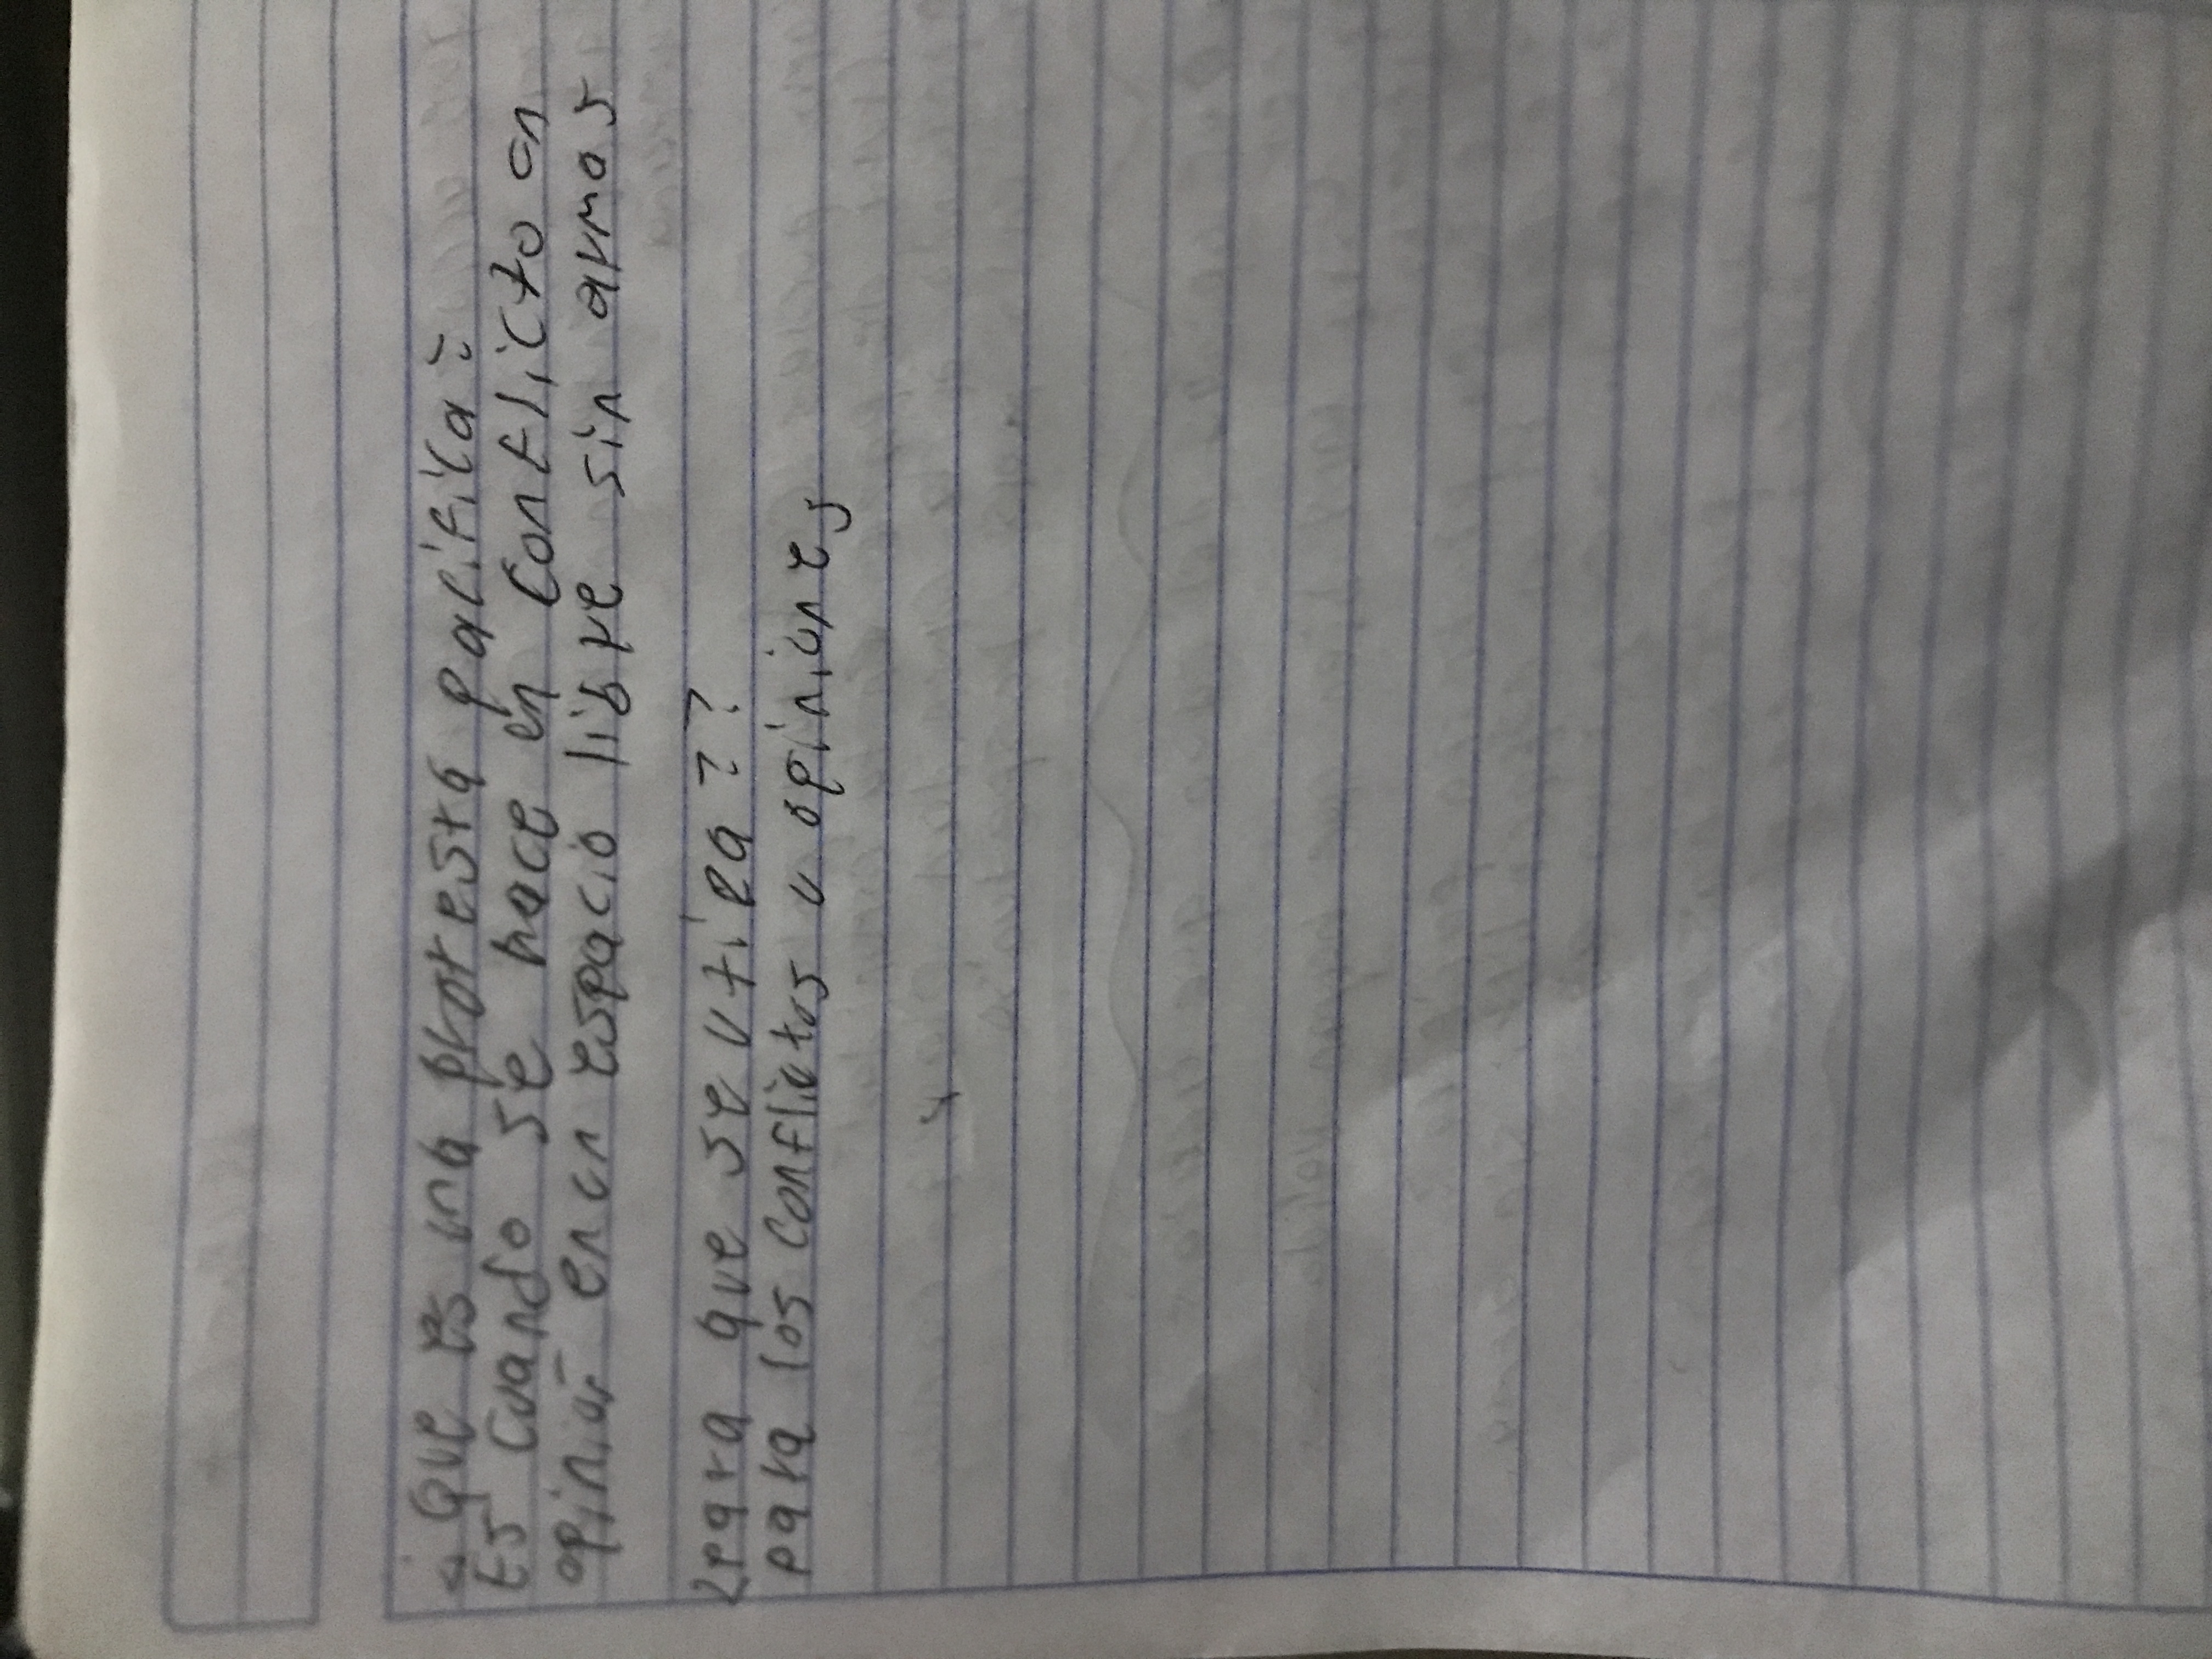 ¿Que es una protesta pacifica?
Es cuando se hace en conflicto on
opinar en un espacio libre sin armas
¿para que se utiRa??
para los conflictos u opiniones